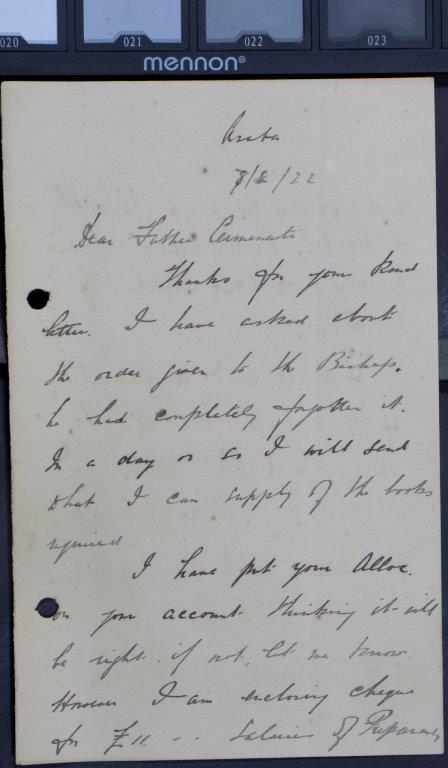 020 021 022 023
mennon®
Asaba
7/8/22
Dear Father Cermenati.
Thanks for your kind
letter. I have asked about
the order given to the Bishop.
he had completely forgotten it.
In a day or so I will send
what I can supply of the books
required.
I have put your Alloc.
on your account thinking it will
be right. if not, let me know.
However I am enclosing cheque
for £11 - - Salaries of